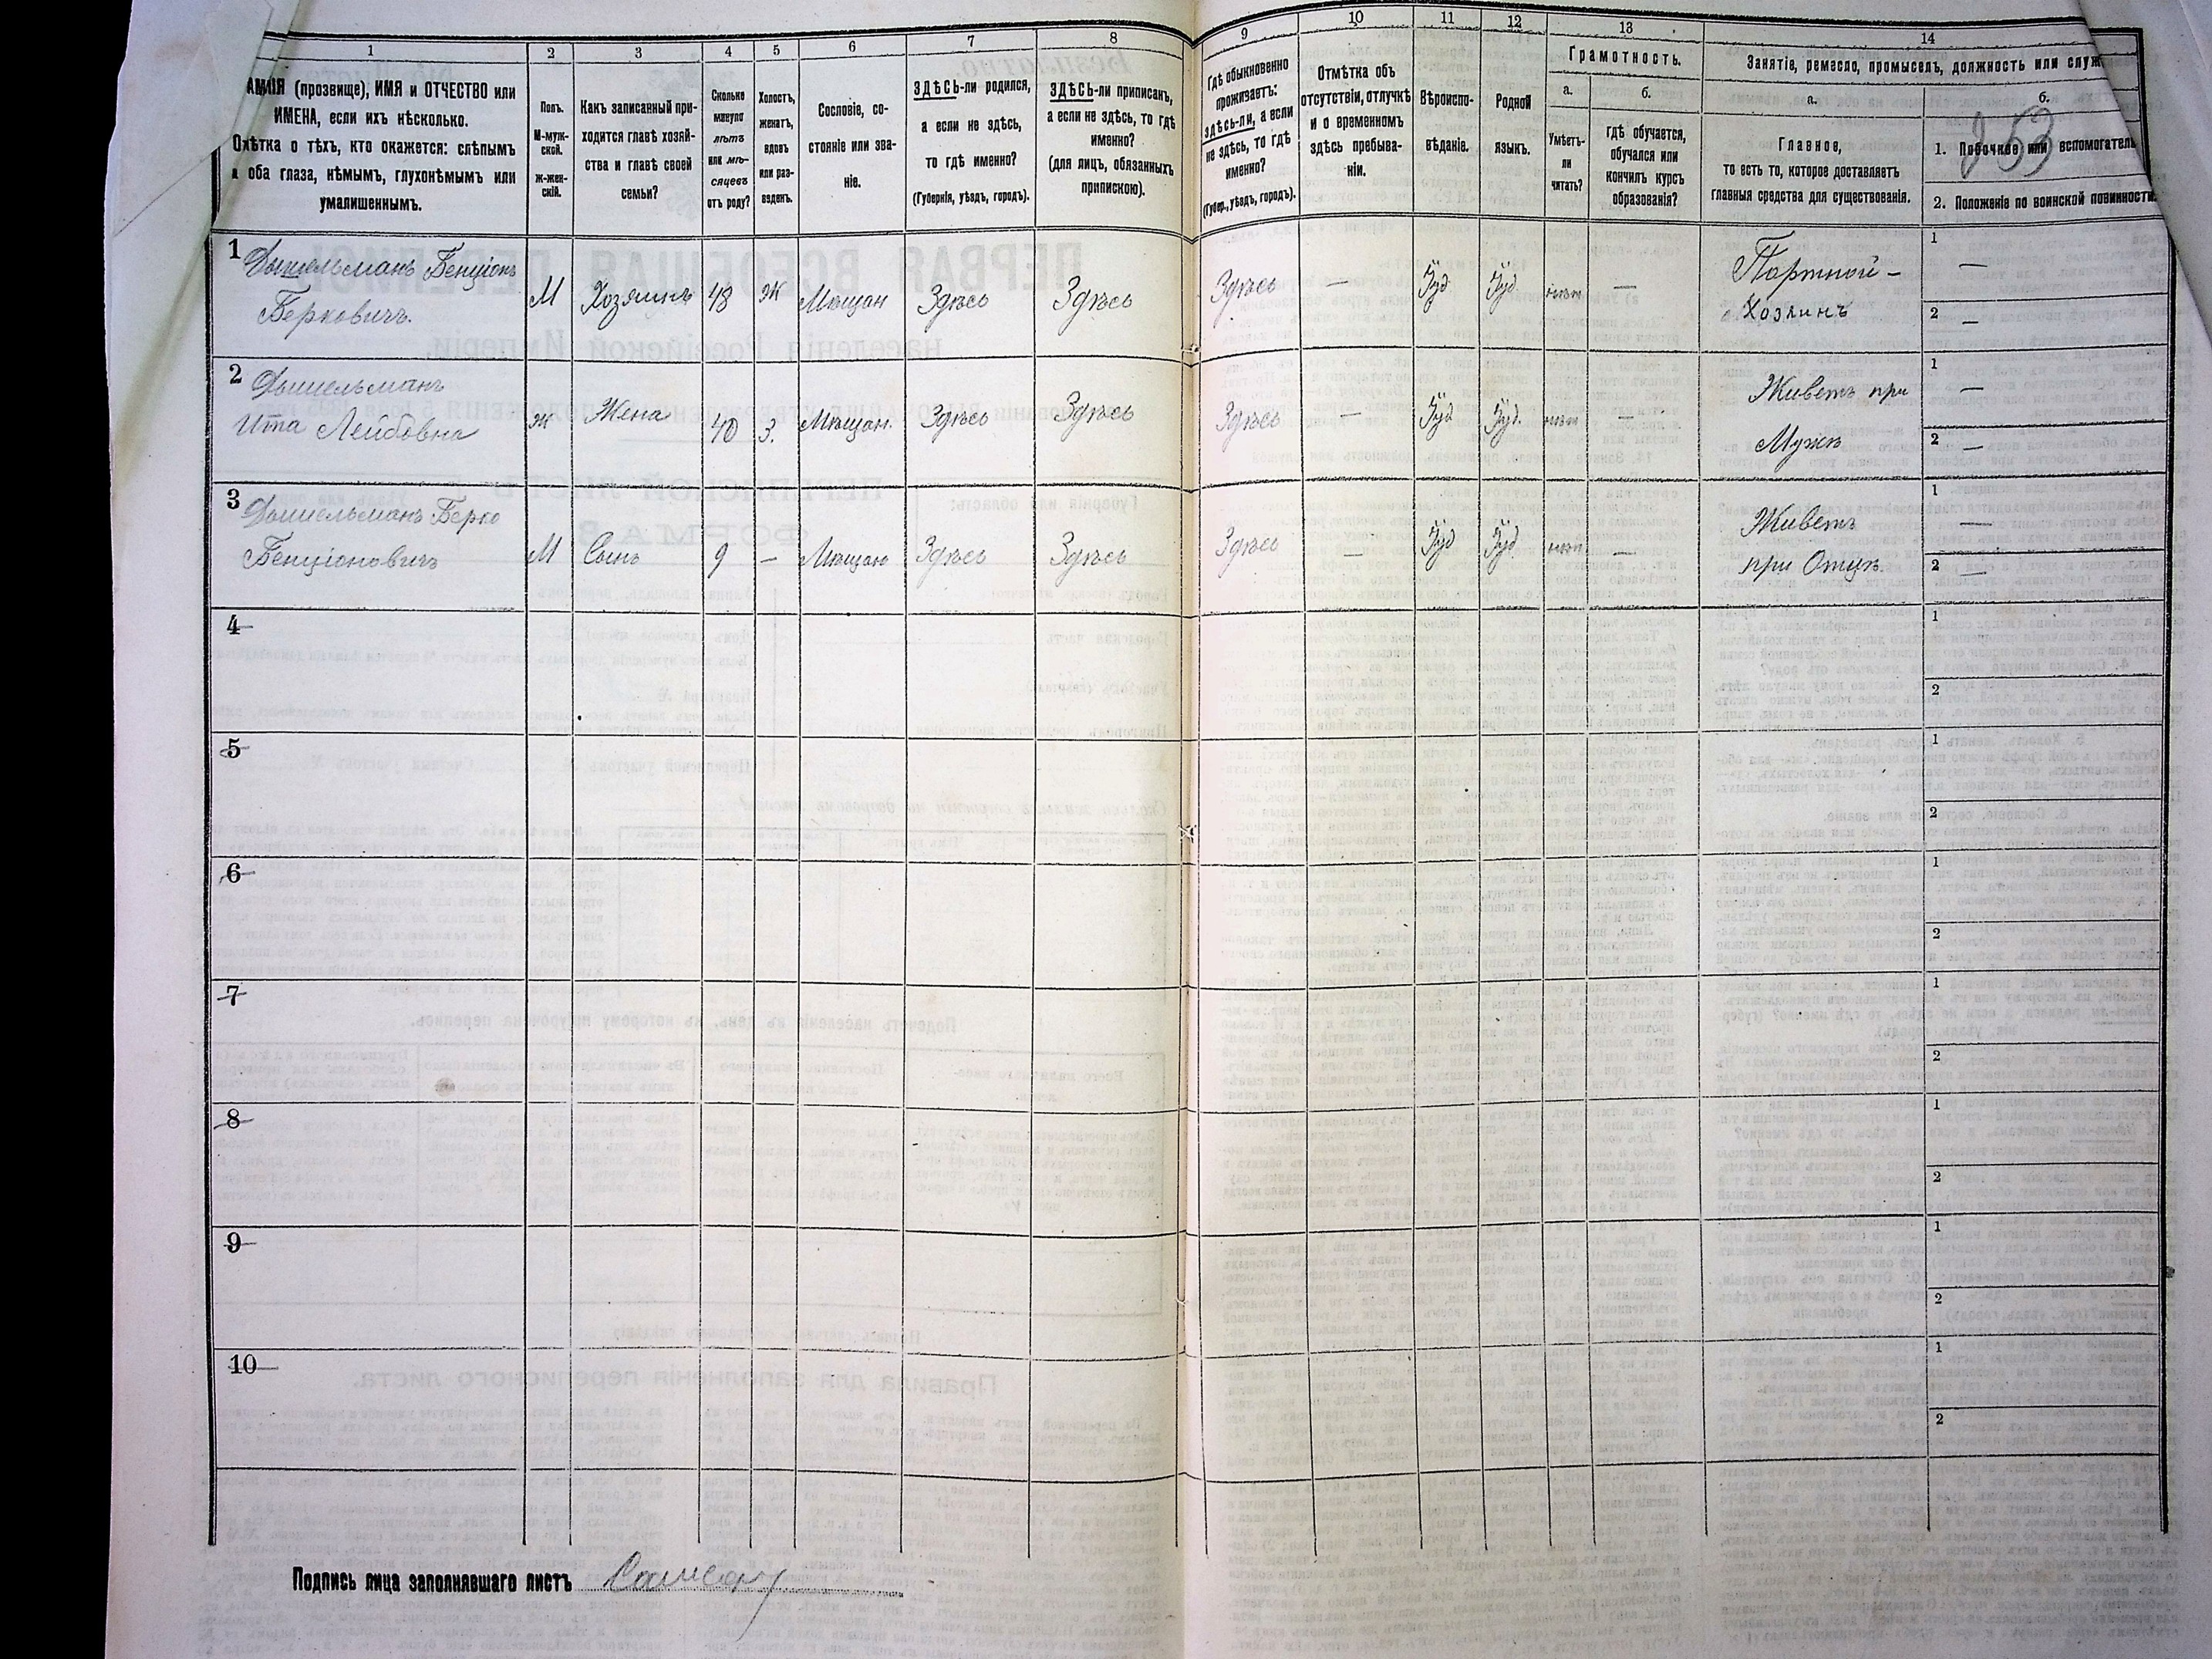 1 2 3 4 5 6 7 8 9 10 11 12 13 14
АМИЛІЯ (прозвище), ИМЯ и ОТЧЕСТВО или
ИМЕНА, если ихъ нѣсколько.
Отмѣтка о тѣхъ, кто окажется: слѣпымъ
на оба глаза, нѣмымъ, глухонѣмымъ или
умалишеннымъ.
Полъ.
М-муж-
ской.
ж-жен-
скій.
Какъ записанный при-
ходится главѣ хозяй-
ства и главѣ своей
семьи?
Сколько
минуло
лѣтъ
или мѣ-
сяцевъ
отъ роду?
Холостъ,
женатъ,
вдовъ
или раз-
веденъ.
Сословіе, со-
стояніе или зва-
ніе.
ЗДѢСЬ-ли родился,
а если не здѣсь,
то гдѣ именно?
(Губернія, уѣздъ, городъ).
ЗДѢСЬ-ли приписанъ,
а если не здѣсь, то гдѣ
именно?
(для лицъ, обязанныхъ
припискою).
Гдѣ обыкновенно
проживаетъ:
здѣсь-ли, а если
не здѣсь, то гдѣ
именно?
(Губер., уѣздъ, городъ).
Отмѣтка объ
отсутствіи, отлучкѣ
и о временномъ
здѣсь пребыва-
ніи.
Вѣроиспо-
вѣданіе.
Родной
языкъ.
Грамотность.
а.
Умѣетъ-
ли
читать?
б.
гдѣ обучается,
обучался или
кончилъ курсъ
образованія?
Занятіе, ремесло, промыселъ, должность или служ
а.
Главное,
то есть то, которое доставляетъ
главныя средства для существованія.
б.
253
1. Побочное или вспомогатель
2. Положеніе по воинской повинности.
1 Дышельманъ Бенціонъ
Берковичъ. М Хозяинъ 48 Ж Мѣщан Здѣсь Здѣсь Здѣсь — Іуд Іуд нѣтъ — Портной -
Хозяинъ 1 — 2 —
2 Дышельманъ
Ита Лейбовна Ж Жена 40 З. Мѣщан. Здѣсь Здѣсь Здѣсь — Іуд Іуд. нѣтъ — Живетъ при
Мужѣ 1 — 2 —
3 Дышельманъ Берко
Бенціоновичъ М Сынъ 9 — Мѣщан Здѣсь Здѣсь Здѣсь — Іуд Іуд нѣтъ — Живетъ
при Отцѣ 1 — 2 —
4 1 2
5 1 2
6 1 2
7 1 2
8 1 2
9 1 2
10 1 2
Подпись лица заполнявшаго листъ